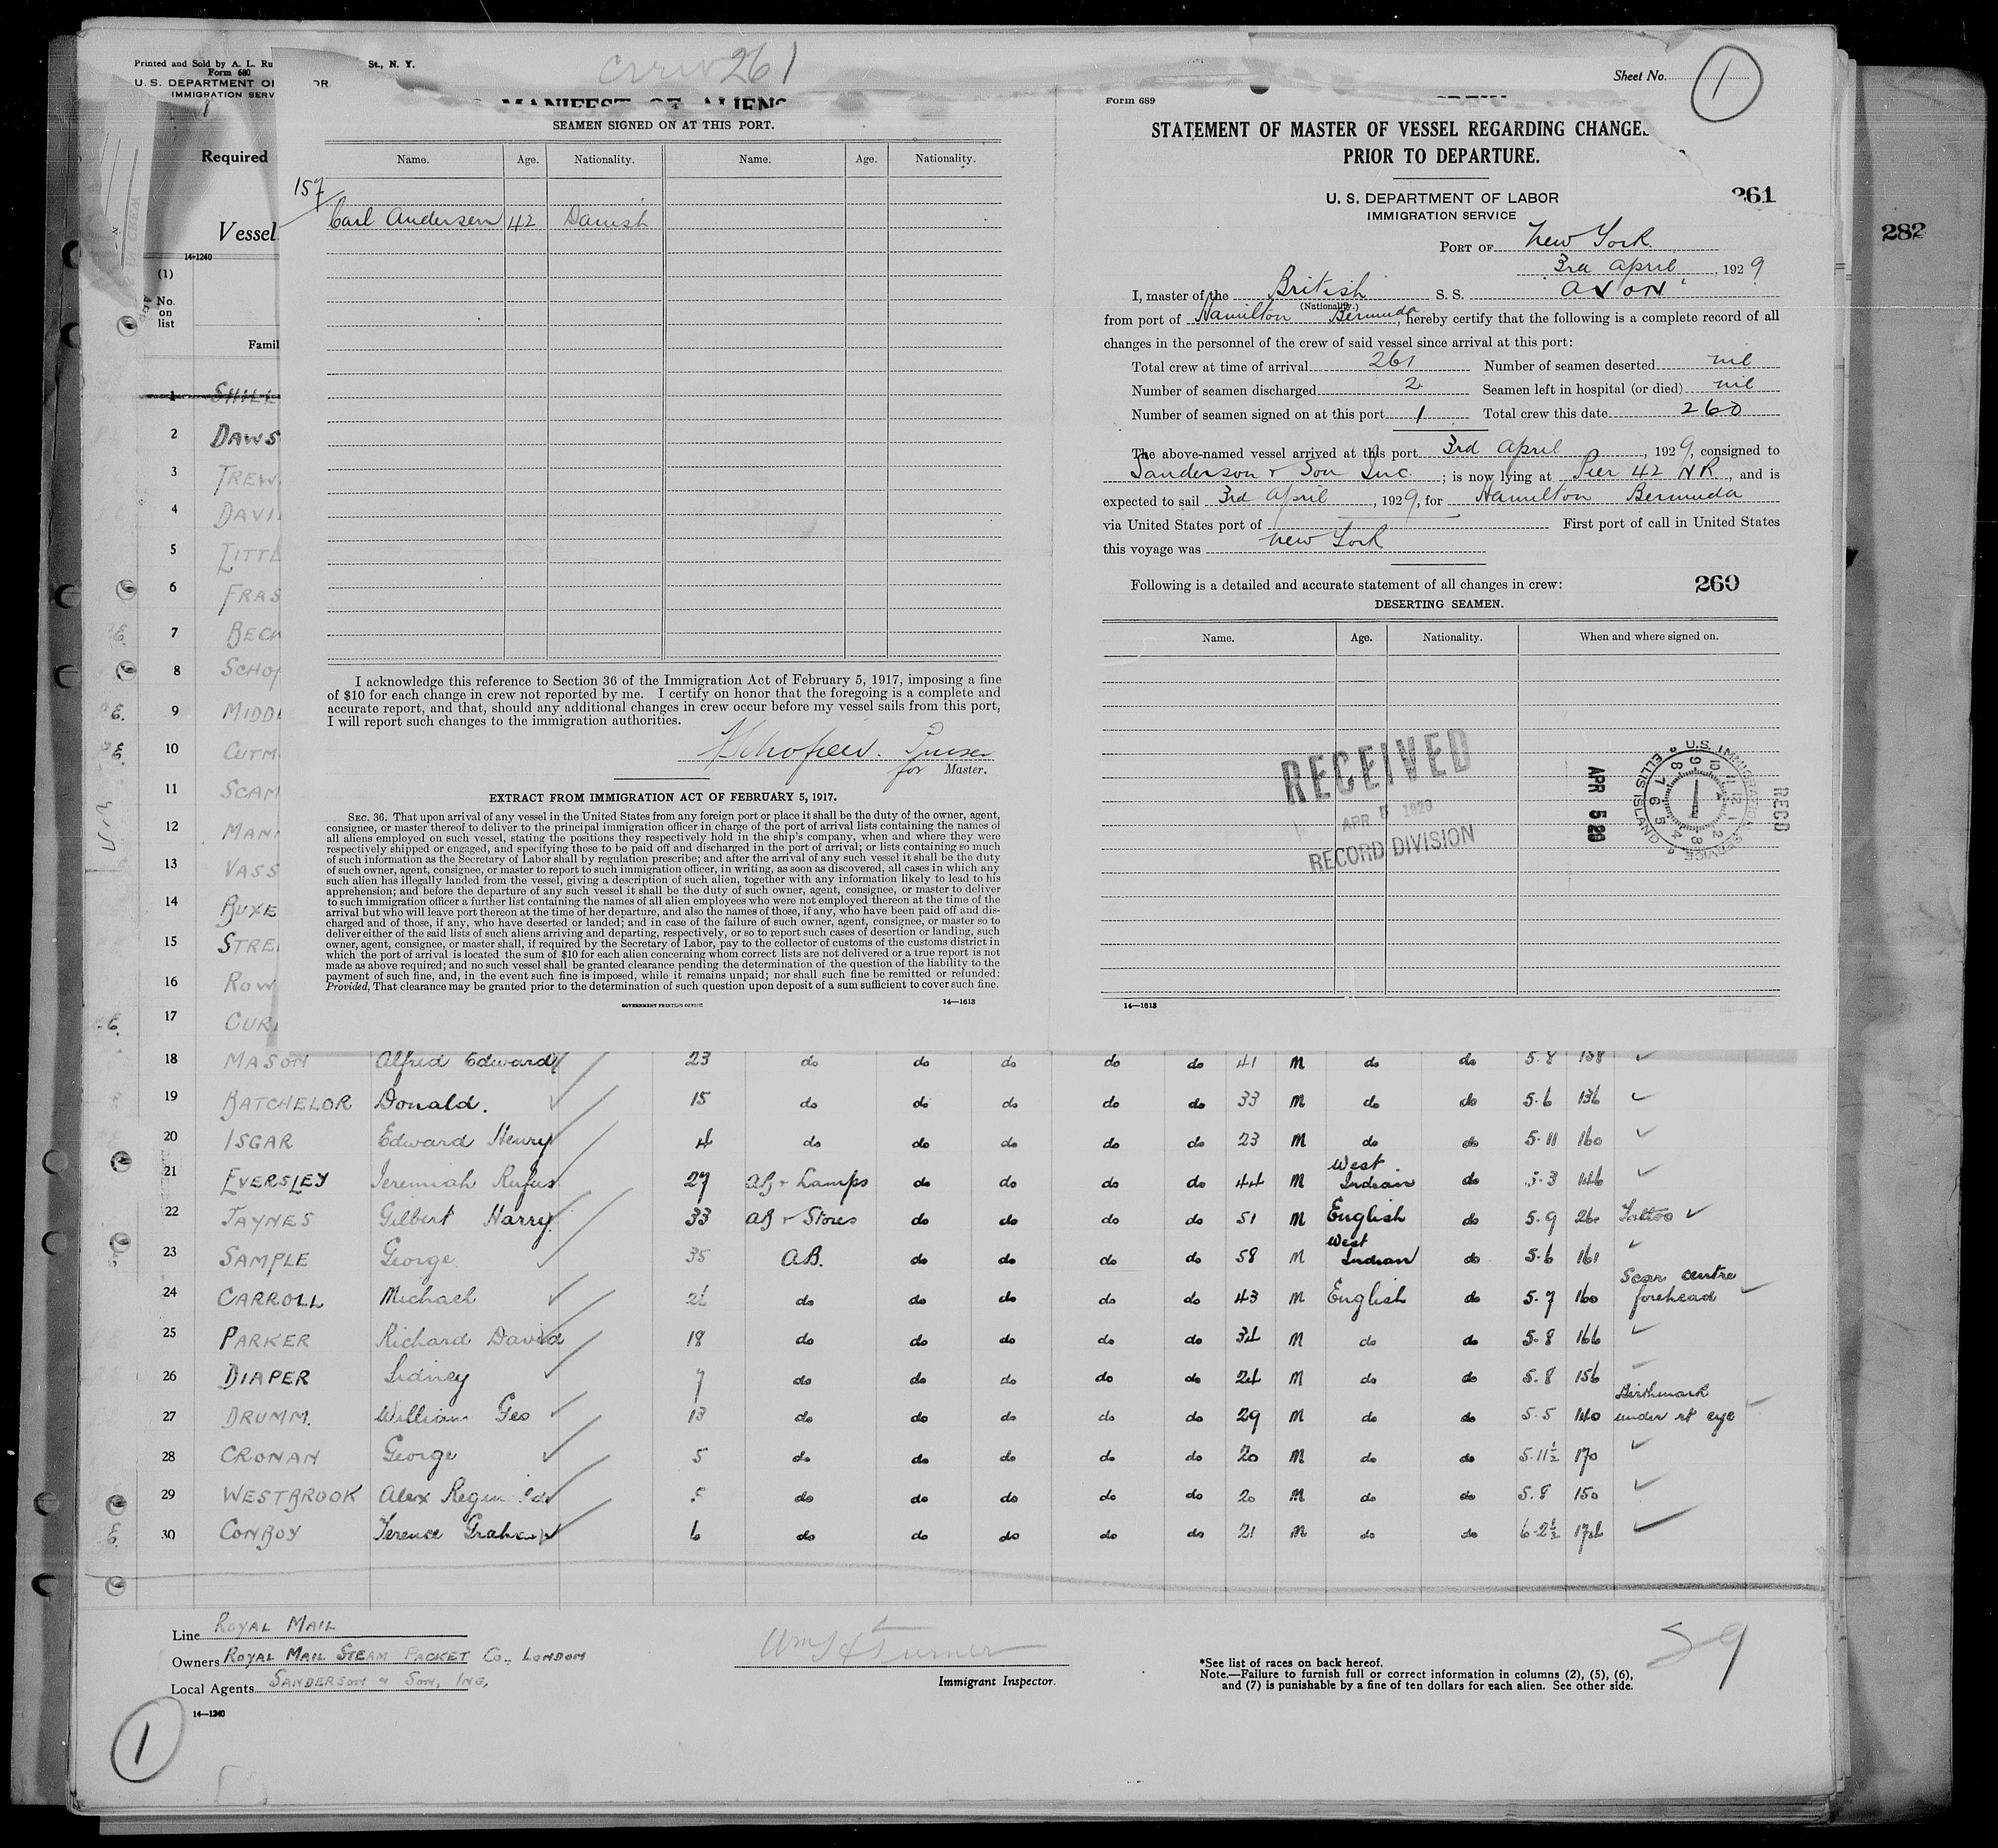 Printed and Sold by A. L. Ru
St., N. Y.
Form 680
U. S. DEPARTMENT OF
OR
IMMIGRATION SERV
crew 261
Required
Vessel
14-1240
(1)
No.
on
list
Famil
MANIFEST OF ALIENS
SEAMEN SIGNED ON AT THIS PORT.
Name. Age. Nationality. Name. Age. Nationality.
157
Carl Andersen 42 Danish
I acknowledge this reference to Section 36 of the Immigration Act of February 5, 1917, imposing a fine
of $10 for each change in crew not reported by me. I certify on honor that the foregoing is a complete and
accurate report, and that, should any additional changes in crew occur before my vessel sails from this port,
I will report such changes to the immigration authorities.
Schofield. Purser
for Master.
EXTRACT FROM IMMIGRATION ACT OF FEBRUARY 5, 1917.
SEC. 36. That upon arrival of any vessel in the United States from any foreign port or place it shall be the duty of the owner, agent,
consignee, or master thereof to deliver to the principal immigration officer in charge of the port of arrival lists containing the names of
all aliens employed on such vessel, stating the positions they respectively hold in the ship's company, when and where they were
respectively shipped or engaged, and specifying those to be paid off and discharged in the port of arrival; or lists containing so much
of such information as the Secretary of Labor shall by regulation prescribe; and after the arrival of any such vessel it shall be the duty
of such owner, agent, consignee, or master to report to such immigration officer, in writing, as soon as discovered, all cases in which any
such alien has illegally landed from the vessel, giving a description of such alien, together with any information likely to lead to his
apprehension; and before the departure of any such vessel it shall be the duty of such owner, agent, consignee, or master to deliver
to such immigration officer a further list containing the names of all alien employees who were not employed thereon at the time of the
arrival but who will leave port thereon at the time of her departure, and also the names of those, if any, who have been paid off and dis-
charged and of those, if any, who have deserted or landed; and in case of the failure of such owner, agent, consignee, or master so to
deliver either of the said lists of such aliens arriving and departing, respectively, or so to report such cases of desertion or landing, such
owner, agent, consignee, or master shall, if required by the Secretary of Labor, pay to the collector of customs of the customs district in
which the port of arrival is located the sum of $10 for each alien concerning whom correct lists are not delivered or a true report is not
made as above required; and no such vessel shall be granted clearance pending the determination of the question of the liability to the
payment of such fine, and, in the event such fine is imposed, while it remains unpaid; nor shall such fine be remitted or refunded:
Provided, That clearance may be granted prior to the determination of such question upon deposit of a sum sufficient to cover such fine.
GOVERNMENT PRINTING OFFICE
14—1613
Sheet No. 1
Form 689
CREW
STATEMENT OF MASTER OF VESSEL REGARDING CHANGES
PRIOR TO DEPARTURE.
U. S. DEPARTMENT OF LABOR
IMMIGRATION SERVICE
261
282
PORT OF New York
3rd April, 1929
I, master of the British S. S. "AVON"
(Nationality.)
from port of Hamilton Bermuda, hereby certify that the following is a complete record of all
changes in the personnel of the crew of said vessel since arrival at this port:
Total crew at time of arrival 261 Number of seamen deserted nil
Number of seamen discharged 2 Seamen left in hospital (or died) nil
Number of seamen signed on at this port 1 Total crew this date 260
The above-named vessel arrived at this port 3rd April, 1929, consigned to
Sanderson & Son Inc; is now lying at Pier 42 NR, and is
expected to sail 3rd April, 1929, for Hamilton Bermuda
via United States port of First port of call in United States
this voyage was New York
Following is a detailed and accurate statement of all changes in crew: 260
DESERTING SEAMEN.
Name. Age. Nationality. When and where signed on.
RECEIVED
APR 5 1929
RECORD DIVISION
APR 5 29
U.S. IMMIGRATION SERVICE ELLIS ISLAND
RECD
14—1613
1
2 DAWS
3 TREW
4 DAVI
5 LITTL
6 FRAS
7 BECK
8 SCHOF
9 MIDDL
10 CUTM
11 SCAM
12 MAN
13 VASS
14 BUXE
15 STREE
16 ROW
17 CUR
18 MASON Alfred Edward 23 do do do do do 41 M do do 5.8 158
19 BATCHELOR Donald. 15 do do do do do 33 M do do 5.6 136
20 ISGAR Edward Henry 4 do do do do do 23 M do do 5.11 160
21 EVERSLEY Jeremiah Rufus 27 AB & Lamps do do do do 44 M West Indian do 5.3 146
22 JAYNES Gilbert Harry 33 AB & Stores do do do do 51 M English do 5.9 Tattoo
23 SAMPLE George 35 AB. do do do do 58 M West Indian do 5.6 161
24 CARROLL Michael 26 do do do do do 43 M English do 5.7 160 Scar centre forehead
25 PARKER Richard David 18 do do do do do 34 M do do 5.8 166
26 DIAPER Sidney 7 do do do do do 24 M do do 5.8 156
27 DRUMM. William Geo 13 do do do do do 29 M do do 5.5 140 Birthmark under rt eye
28 CRONAN George 5 do do do do do 20 M do do 5.11½ 170
29 WESTBROOK Alex Reginald 5 do do do do do 20 M do do 5.8 150
30 CONROY Terence Graham 6 do do do do do 21 M do do 6-2½ 174
Line ROYAL MAIL
Owners ROYAL MAIL STEAM PACKET Co., LONDON
Local Agents SANDERSON & SON, INC,
14—1240
Wm S Turner
Immigrant Inspector.
*See list of races on back hereof.
Note.—Failure to furnish full or correct information in columns (2), (5), (6),
and (7) is punishable by a fine of ten dollars for each alien. See other side.
29
1